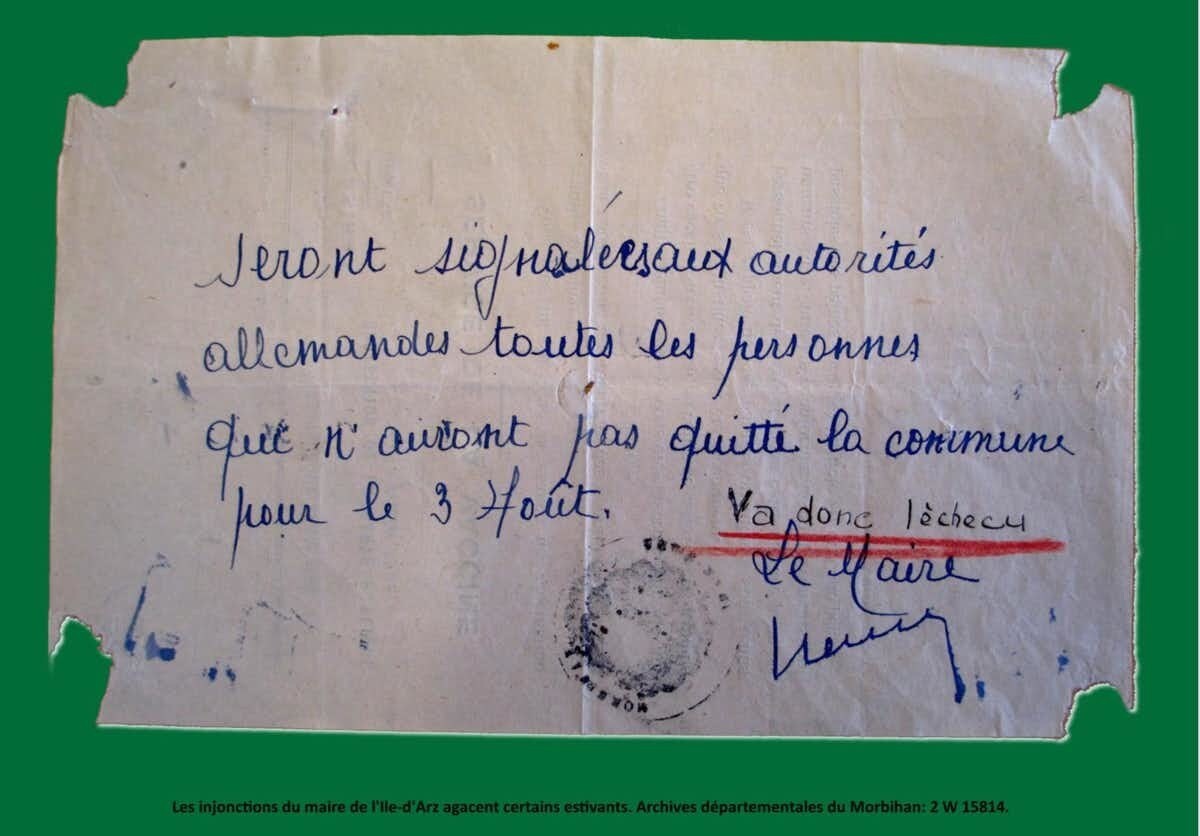 Seront signalées aux autorités
allemandes toutes les personnes
qui n'auront pas quitté la commune
pour le 3 Août.
Va donc lèchecu
Le Maire
MORBIHAN
Les injonctions du maire de l'Ile-d'Arz agacent certains estivants. Archives départementales du Morbihan: 2 W 15814.